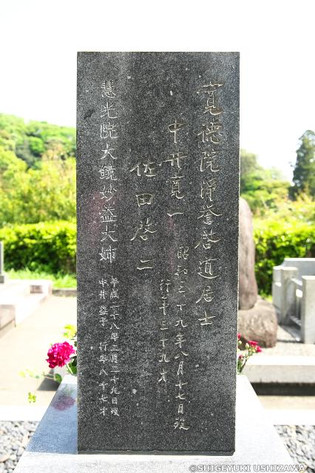 寛徳院澄誉啓道居士
中井寛一
昭和三十九年八月十七日歿
行年三十九才
佐田啓二
慧光院大鏡妙益大姉
平成二十八年二月二十九日歿
中井益子 行年八十七才
©SHIGEYUKI USHIZAWA